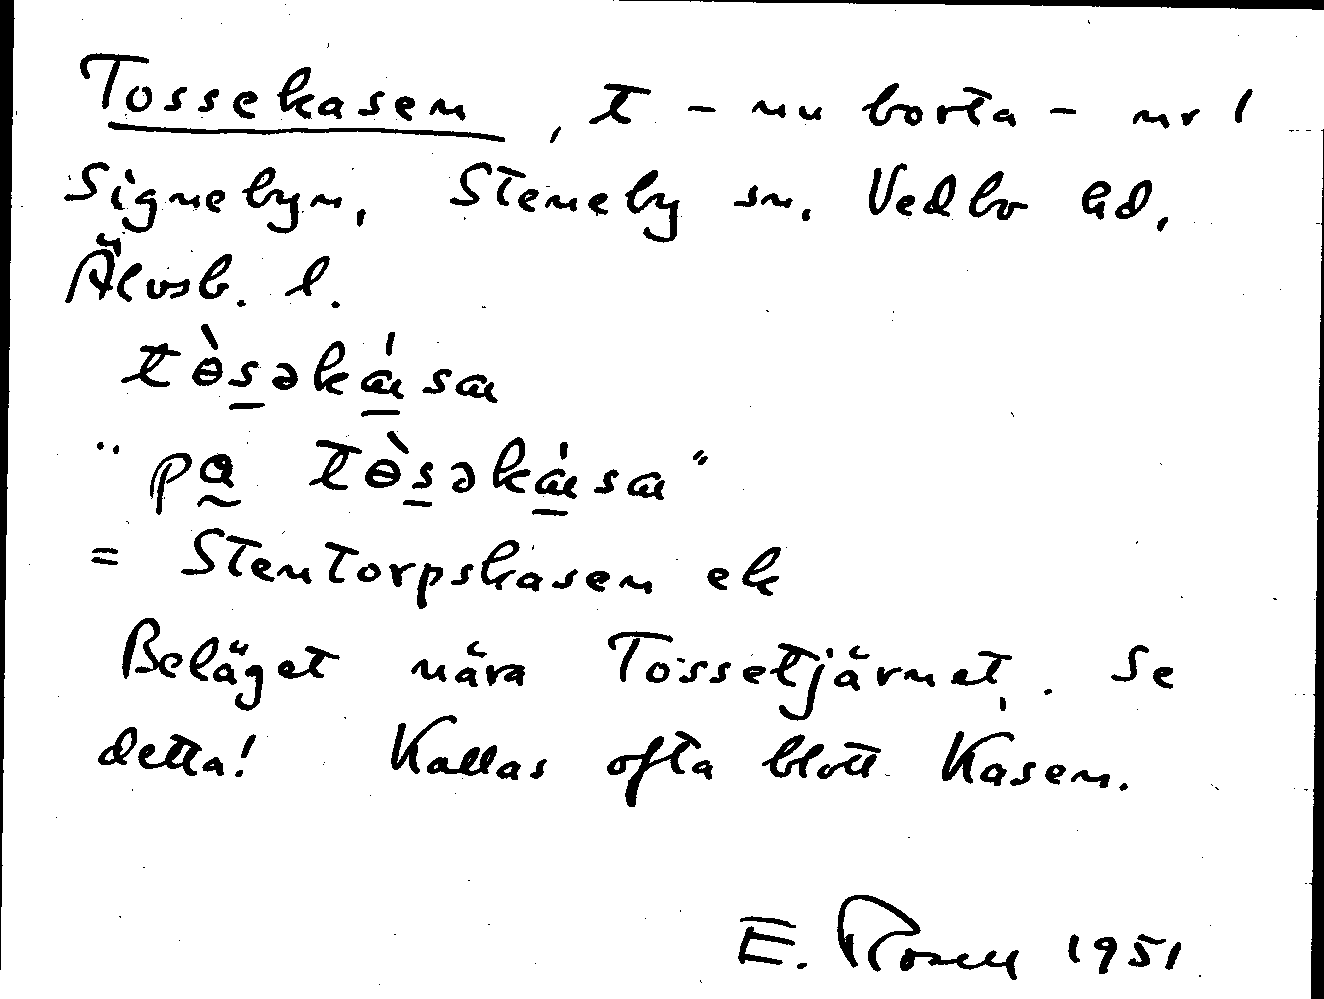 Tossekasen, t - nu borta - nr 1
Signebyn, Steneby sn. Vedbo hd,
Älvsb. l.
tɵ̀s̲əká̲sa
"pa̰ tɵ̀s̲əká̲sa"
= Stentorpskasen ek
Beläget nära Tossetjärnet. Se
detta! Kallas ofta blott Kasen.
E. Rosell 1951